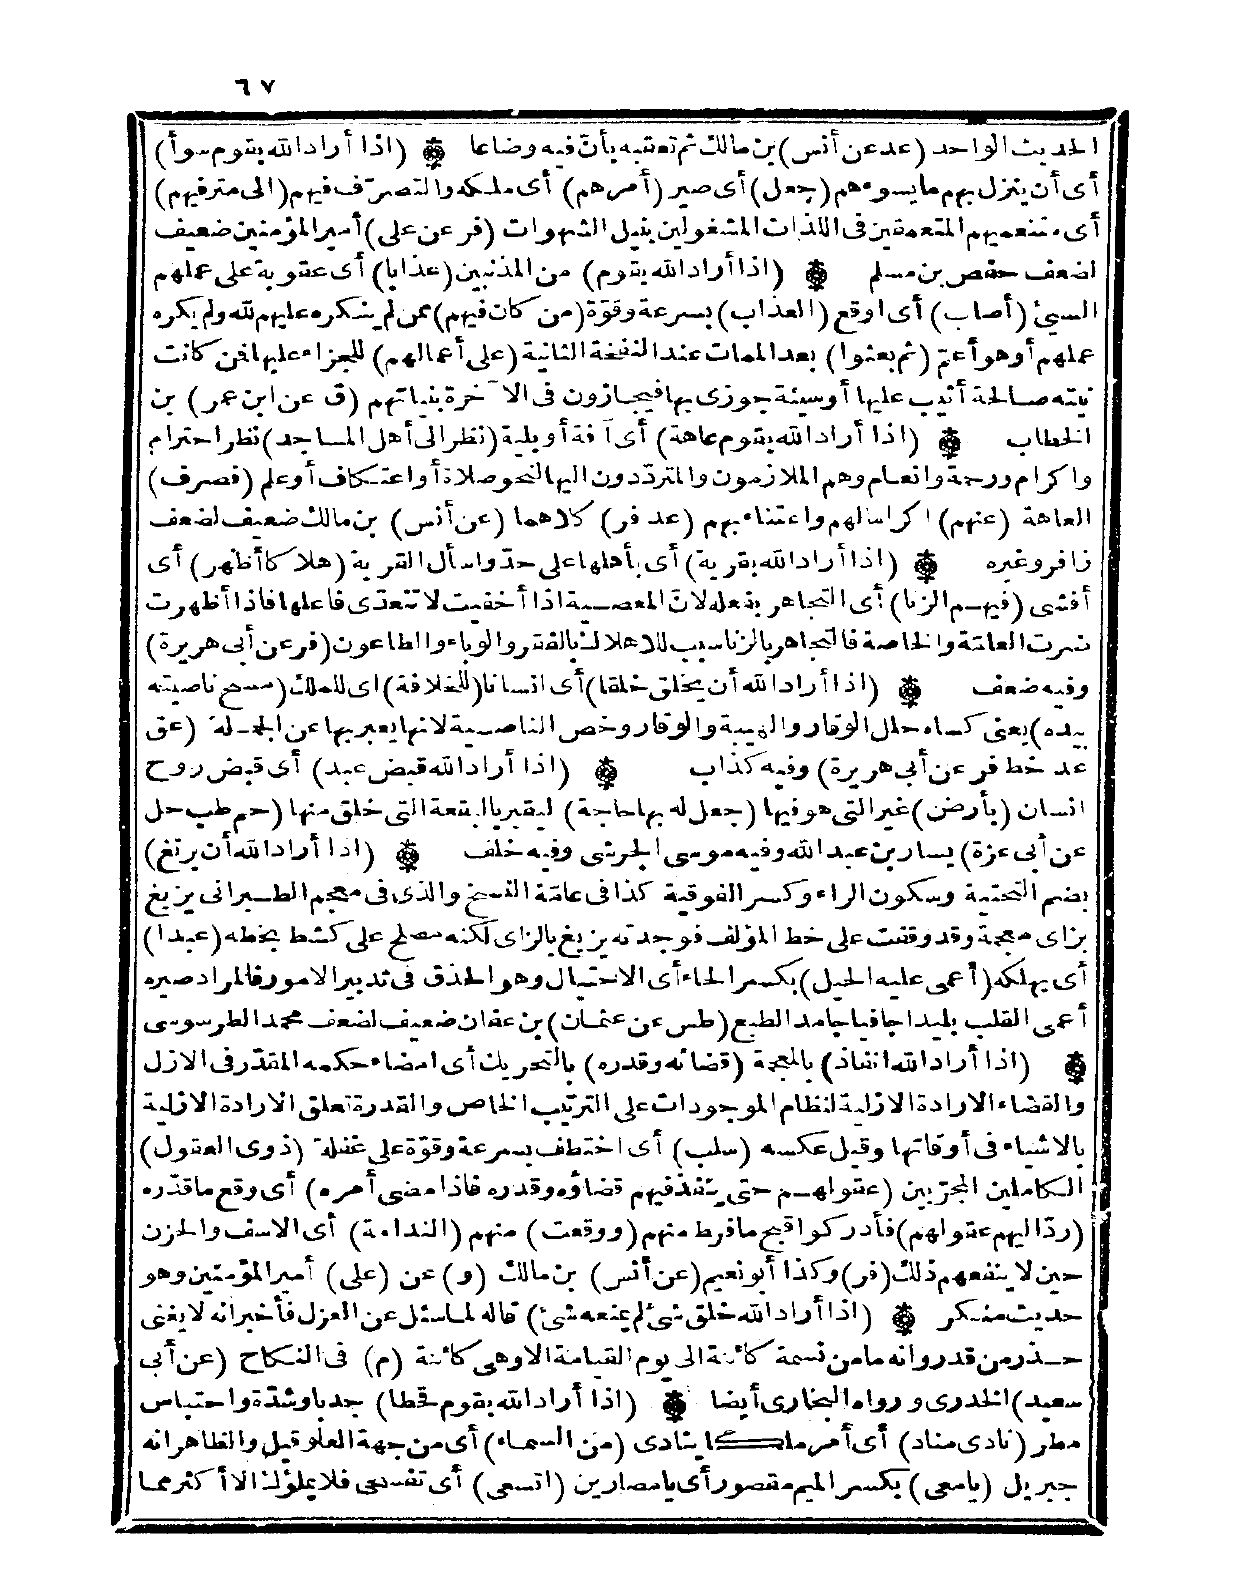 ٦٧
الحديث الواحد (عد عن أنس) بن مالك ثم تعقبه بأن فيه وضاعا ۞ (اذا أراد الله بقوم سوأ)
أى أن ينزل بهم ما يسوءهم (جعل) أى صير (أمرهم) أى ملكه والتصرّف فيهم (الى مترفيهم)
أى متنعميهم المتعمقين فى اللذات المشغولين بنيل الشهوات (فر عن على) أمير المؤمنين ضعيف
لضعف حفص بن مسلم ۞ (اذا أراد الله بقوم) من المذنبين (عذابا) أى عقوبة على عملهم
السيئ (أصاب) أى اوقع (العذاب) بسرعة وقوّة (من كان فيهم) ممن لم ينكره عليهم لله ولم يكره
عملهم أو هو أعمّ (ثم بعثوا) بعد الممات عند النفخة الثانية (على أعمالهم) للجزاء عليها فمن كانت
نيته صالحة أثيب عليها أو سيئة جوزى بها فيجازون فى الآخرة بنياتهم (ق عن ابن عمر) بن
الخطاب ۞ (اذا أراد الله بقوم عاهة) أى آفة أو بلية (نظر الى أهل المساجد) نظر احترام
واكرام ورحمة وانعام وهم الملازمون والمتردّدون اليها لنحو صلاة أو اعتكاف أو علم (فصرف)
العاهة (عنهم) اكراما لهم واعتناء بهم (عد فر) كلاهما (عن أنس) بن مالك ضعيف لضعف
زافر وغيره ۞ (اذا أراد الله بقرية) أى بأهلها على حدّ واسأل القرية (هلاكا أظهر) أى
أفشى (فيهم الزنا) أى التجاهر بفعله لانّ المعصية اذا أخفيت لا تتعدّى فاعلها فاذا أظهرت
ضرت العامّة والخاصة فالتجاهر بالزنا سبب للاهلاك بالفقر والوباء والطاعون (فر عن أبى هريرة)
وفيه ضعف ۞ (اذا أراد الله أن يخلق خلقا) أى انسانا (للخلافة) اى للملك (مسح ناصيته
بيده) يعنى كساه حلل الوقار والهيبة والوقار وخص الناصية لانها يعبر بها عن الجملة (عق
عد خط فر عن أبى هريرة) وفيه كذاب ۞ (اذا أراد الله قبض عبد) أى قبض روح
انسان (بأرض) غير التى هو فيها (جعل له بها حاجة) ليقبر بالبقعة التى خلق منها (حم طب حل
عن أبى عزة) يسار بن عبد الله وفيه موسى الجرشى وفيه خلف ۞ (اذا أراد الله أن يرتغ)
بضم التحتية وسكون الراء وكسر الفوقية كذا فى عامّة النسخ والذى فى معجم الطبرانى يزيغ
بزاى معجمة وقد وقفت على خط المؤلف فوجدته يزيغ بالزاى لكنه مصلح على كشط بخطه (عبدا)
أى يهلكه (أعمى عليه الحيل) بكسر الحاء أى الاحتيال وهو الحذق فى تدبير الامور فالمراد صيره
أعمى القلب بليدا جافيا جامد الطبع (طس عن عثمان) بن عفان ضعيف لضعف محمد الطرسوسى
۞ (اذا أراد الله انفاذ) بالمعجمة (قضائه وقدره) بالتحريك أى امضاء حكمه المقدّر فى الازل
والقضاء الارادة الازلية لنظام الموجودات على الترتيب الخاص والقدرة تعلق الارادة الازلية
بالاشياء فى أوقاتها وقيل عكسه (سلب) أى اختطف بسرعة وقوّة على غفلة (ذوى العقول)
الكاملين المجرّبين (عقولهم حتى ينفذ فيهم قضاؤه وقدره فاذا مضى أمره) أى وقع ما قدّره
(ردّ اليهم عقولهم) فأدركوا قبح ما فرط منهم (ووقعت) منهم (الندامة) أى الاسف والحزن
حين لا ينفعهم ذلك (فر) وكذا أبو نعيم (عن أنس) بن مالك (و) عن (على) أمير المؤمنين وهو
حديث منكر ۞ (اذا أراد الله خلق شئ لم يمنعه شئ) قاله لما سئل عن العزل فأخبر انه لا يغنى
حذر من قدر وانه ما من نسمة كائنة الى يوم القيامة الا وهى كائنة (م) فى النكاح (عن أبى
سعيد) الخدرى ورواه البخارى أيضا ۞ (اذا أراد الله بقوم قحطا) جدبا وشدّة واحتباس
مطر (نادى مناد) أى أمر ملكا ينادى (من السماء) أى من جهة العلو قيل والظاهر انه
جبريل (يا معى) بكسر الميم مقصور أى يا مصارين (اتسعى) أى تفسحى فلا يملؤك الا أكثر مما